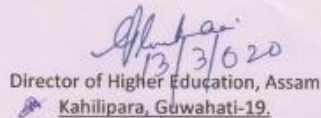 13/3/020
Director of Higher Education, Assam
Kahilipara, Guwahati-19.